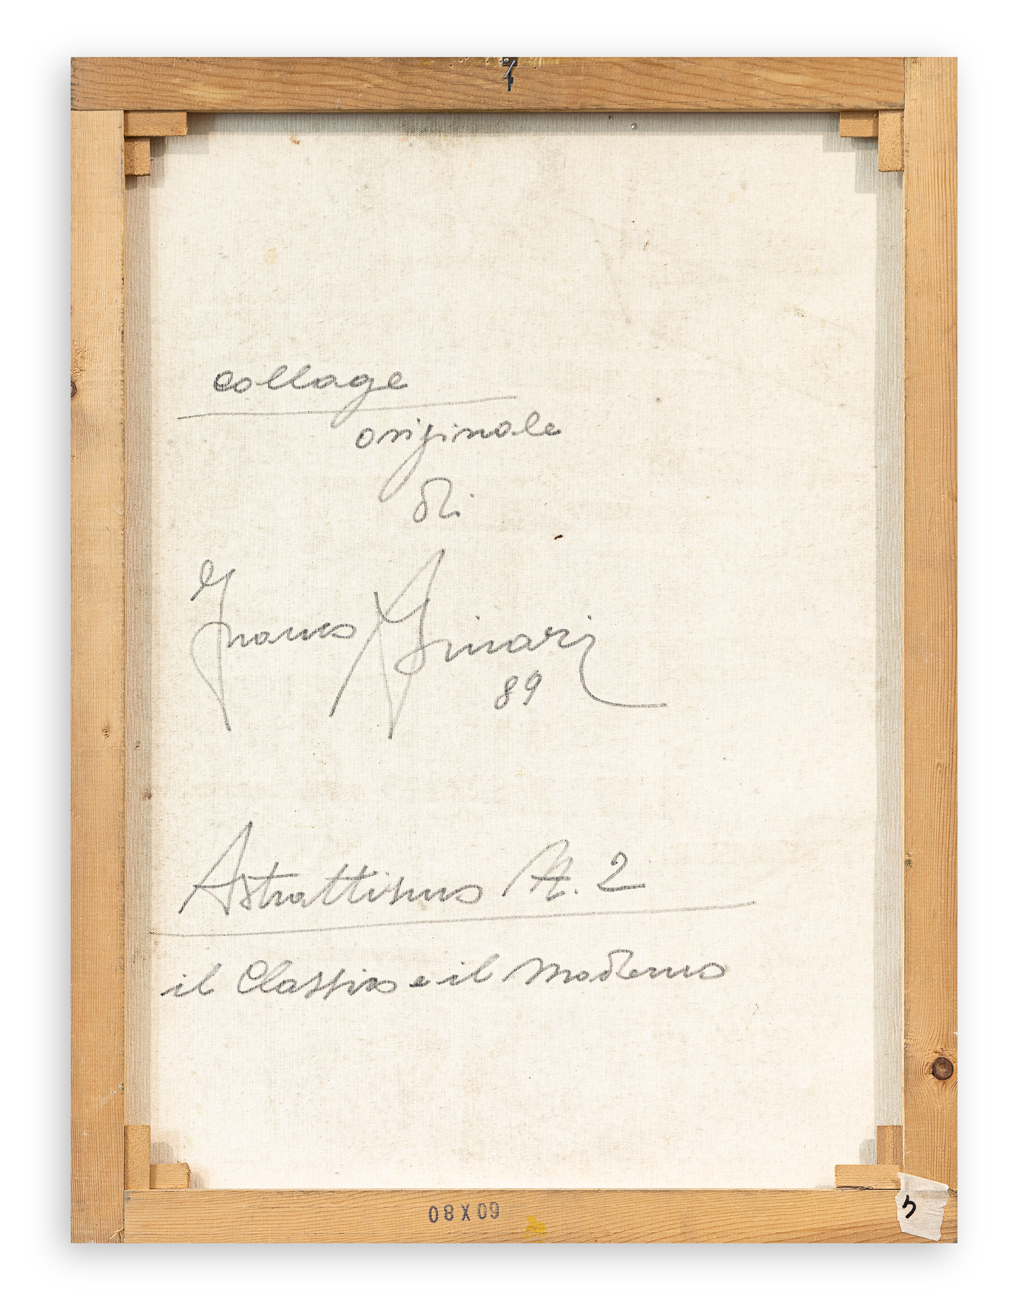 collage
originale
di
Franco Azzinari
89
Astrattismo 2
il Classico e il Moderno
60X80